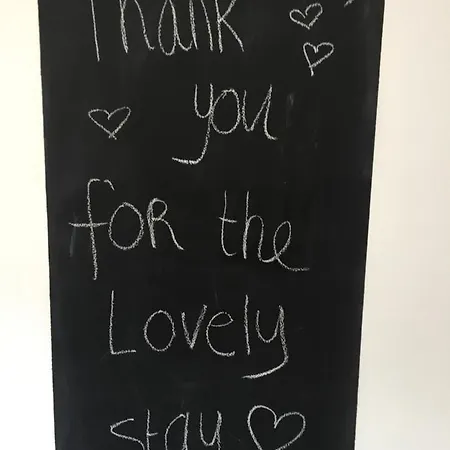 Thank
you
foR the
Lovely
stay